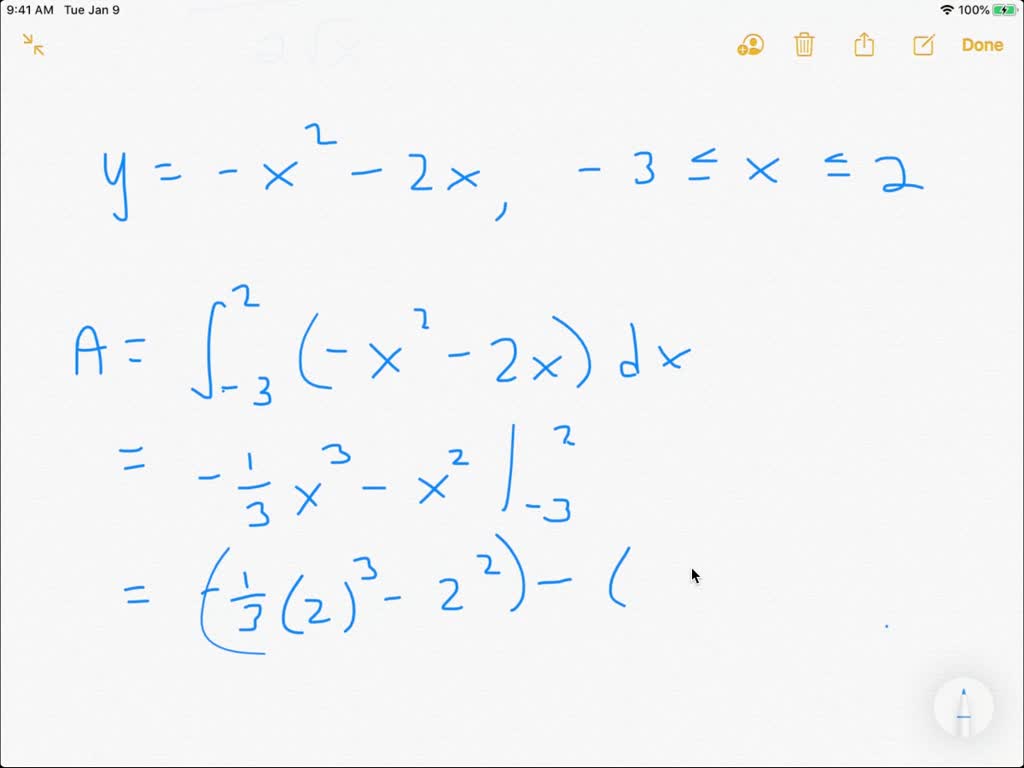 9:41 AM Tue Jan 9 100%
Done
y = - x² - 2x, - 3 ≤ x ≤ 2
A = ∫₋₃² (- x² - 2x) dx
= - 1/3 x³ - x² |₋₃²
= (- 1/3 (2)³ - 2²) - (